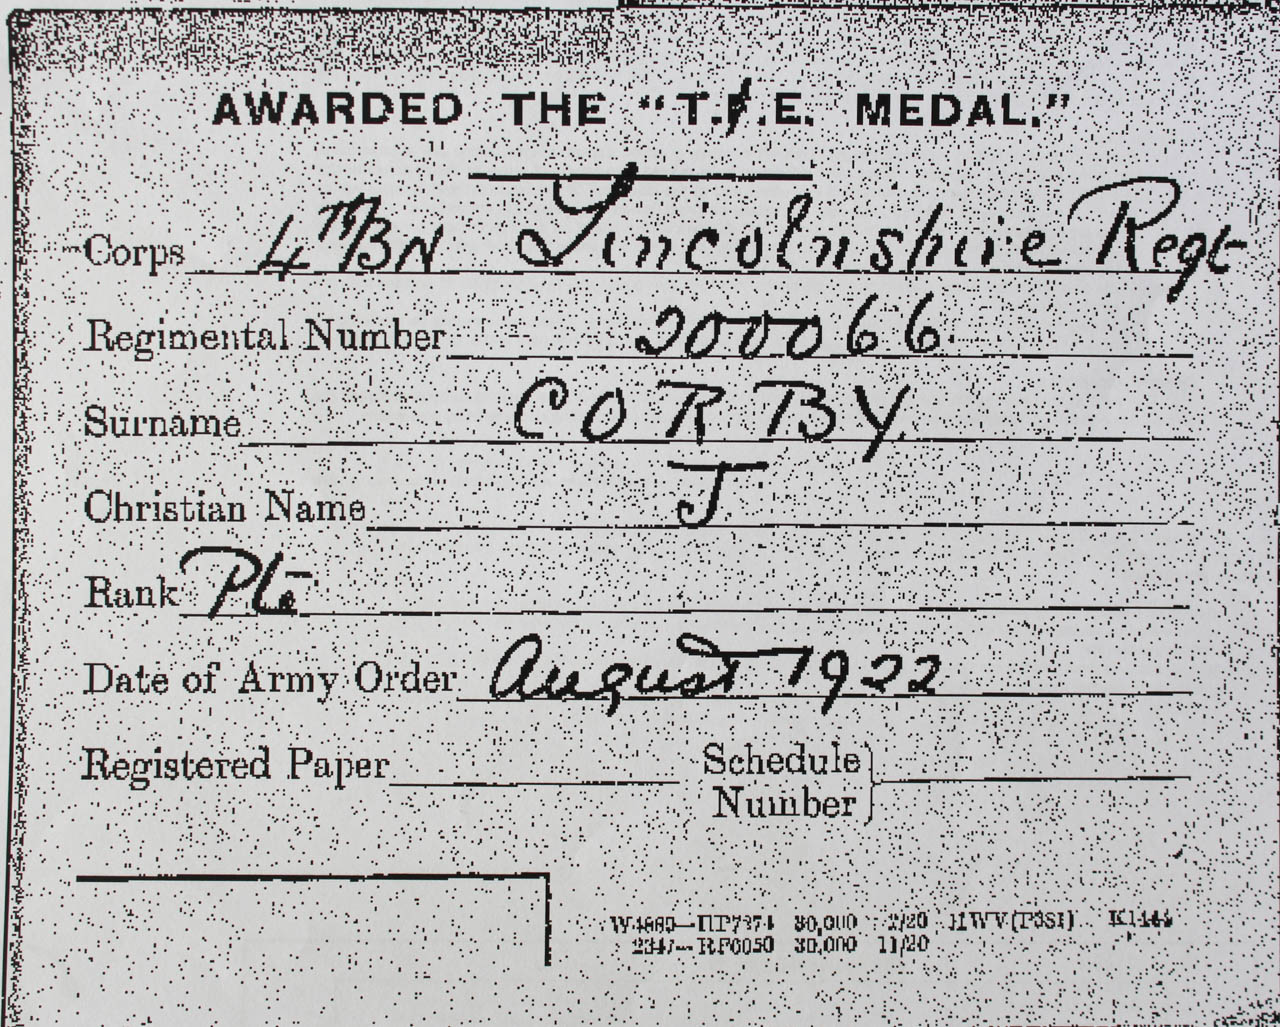 AWARDED THE "T.F.E. MEDAL."
Corps 4TH BN Lincolnshire Regt
Regimental Number 200066
Surname CORBY
Christian Name J
Rank Pte
Date of Army Order August 1922
Registered Paper Schedule Number
30,000 2/20 HWV(P351)
30,000 11/20